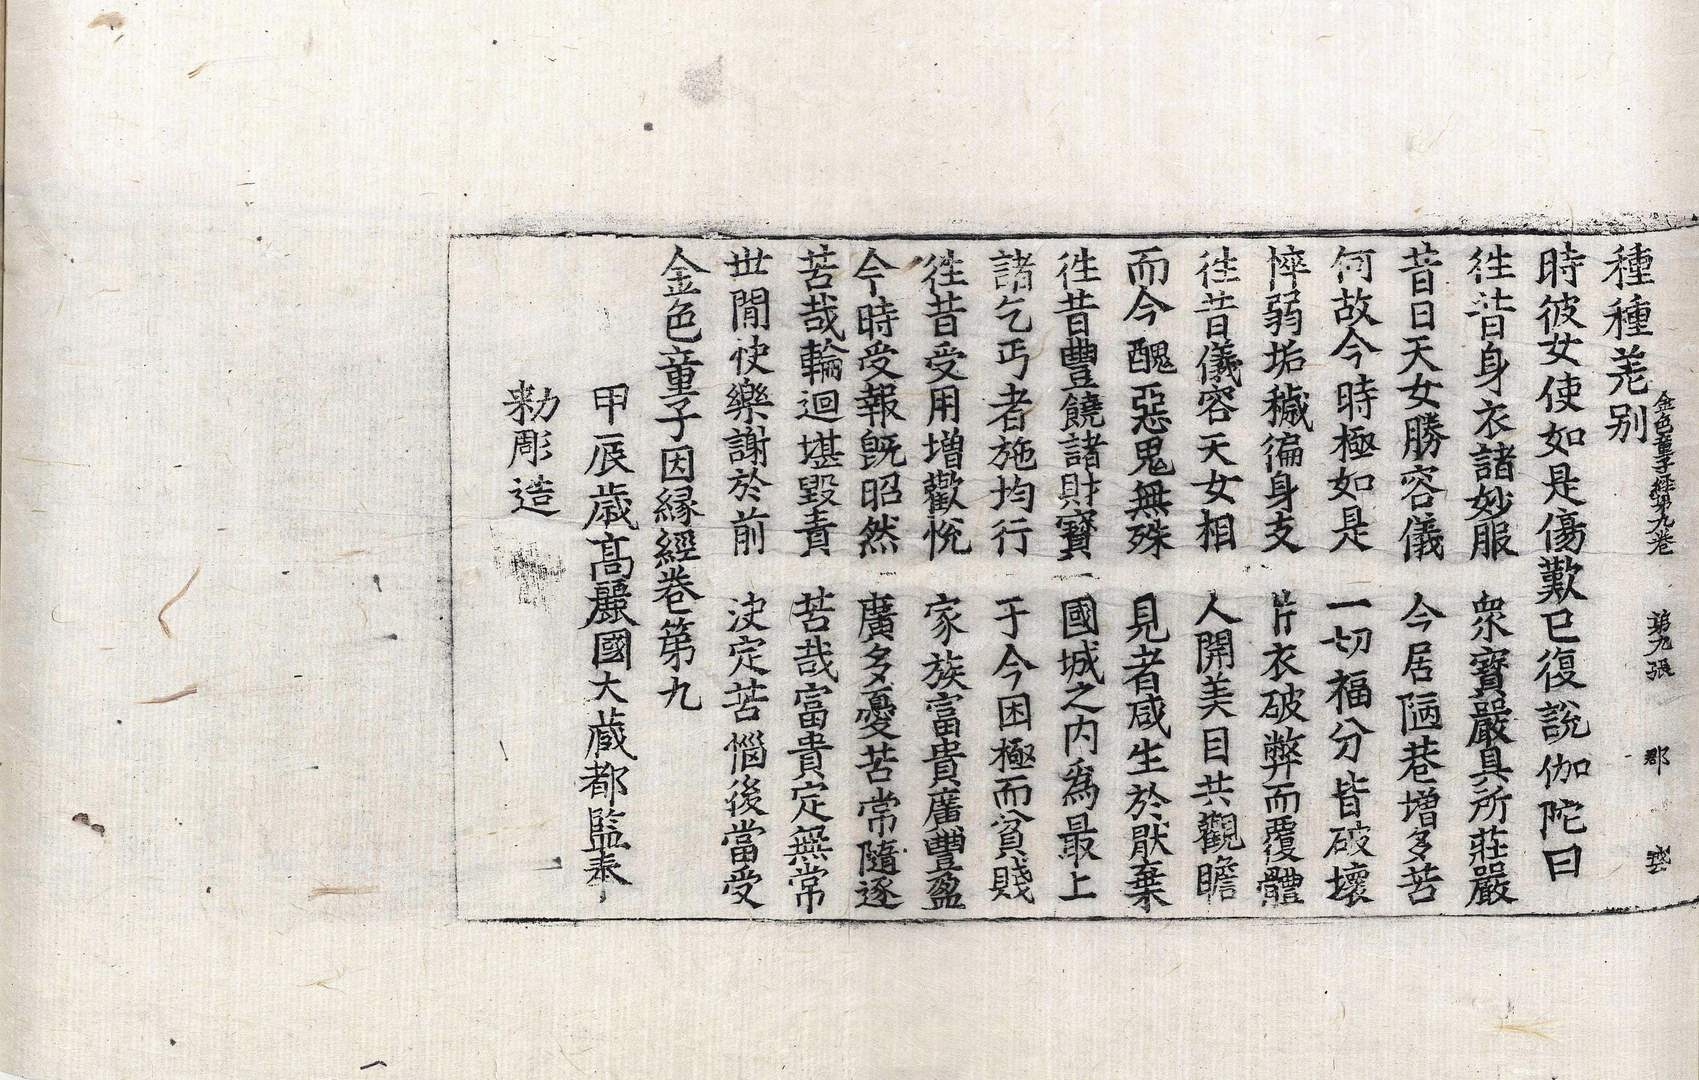 金色童子經第九卷　第九張　郡
種種差别
時彼女使如是傷歎已復說伽陀曰
徃昔身衣諸妙服　衆寶嚴具所莊嚴
昔日天女勝容儀　今居陋巷增多苦
何故今時極如是　一切福分皆破壞
悴弱垢穢徧身支　片衣破弊而覆體
徃昔儀容天女相　人間美目共觀瞻
而今醜惡鬼無殊　見者咸生於厭棄
徃昔豐饒諸財寶　國城之内爲最上
諸乞丐者施均行　于今困極而貧賤
徃昔受用增歡悅　家族富貴廣豐盈
今時受報旣昭然　廣多憂苦常隨逐
苦哉輪迴堪毀責　苦哉富貴定無常
世間快樂謝於前　決定苦惱後當受
金色童子因縁經卷第九
甲辰歲高麗國大藏都監奉
勑彫造